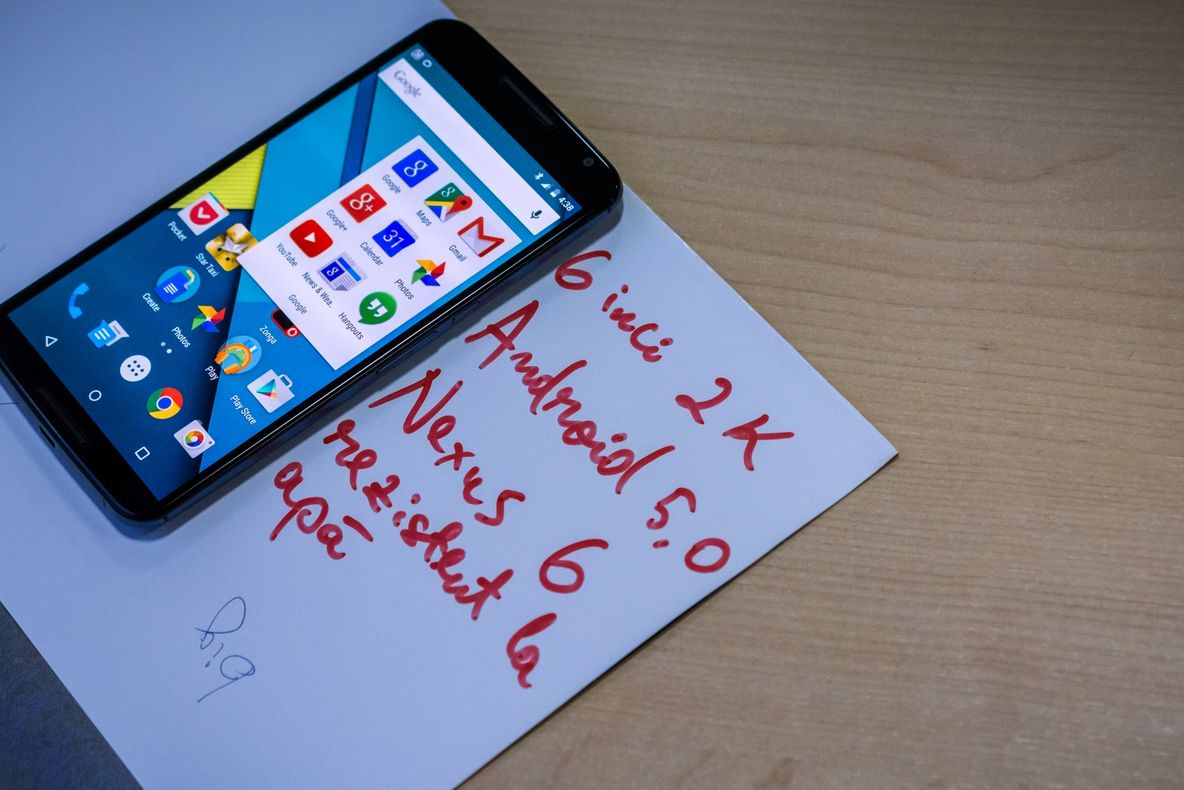 Google
4:38
Google
Maps
Gmail
Google+
Calendar
31
Photos
YouTube
News & Wea...
Hangouts
Google
Pocket
Star Taxi
Create
Photos
Zonga
Play
Play Store
6 inci 2K
Android 5.0
Nexus 6
rezistent la
apă